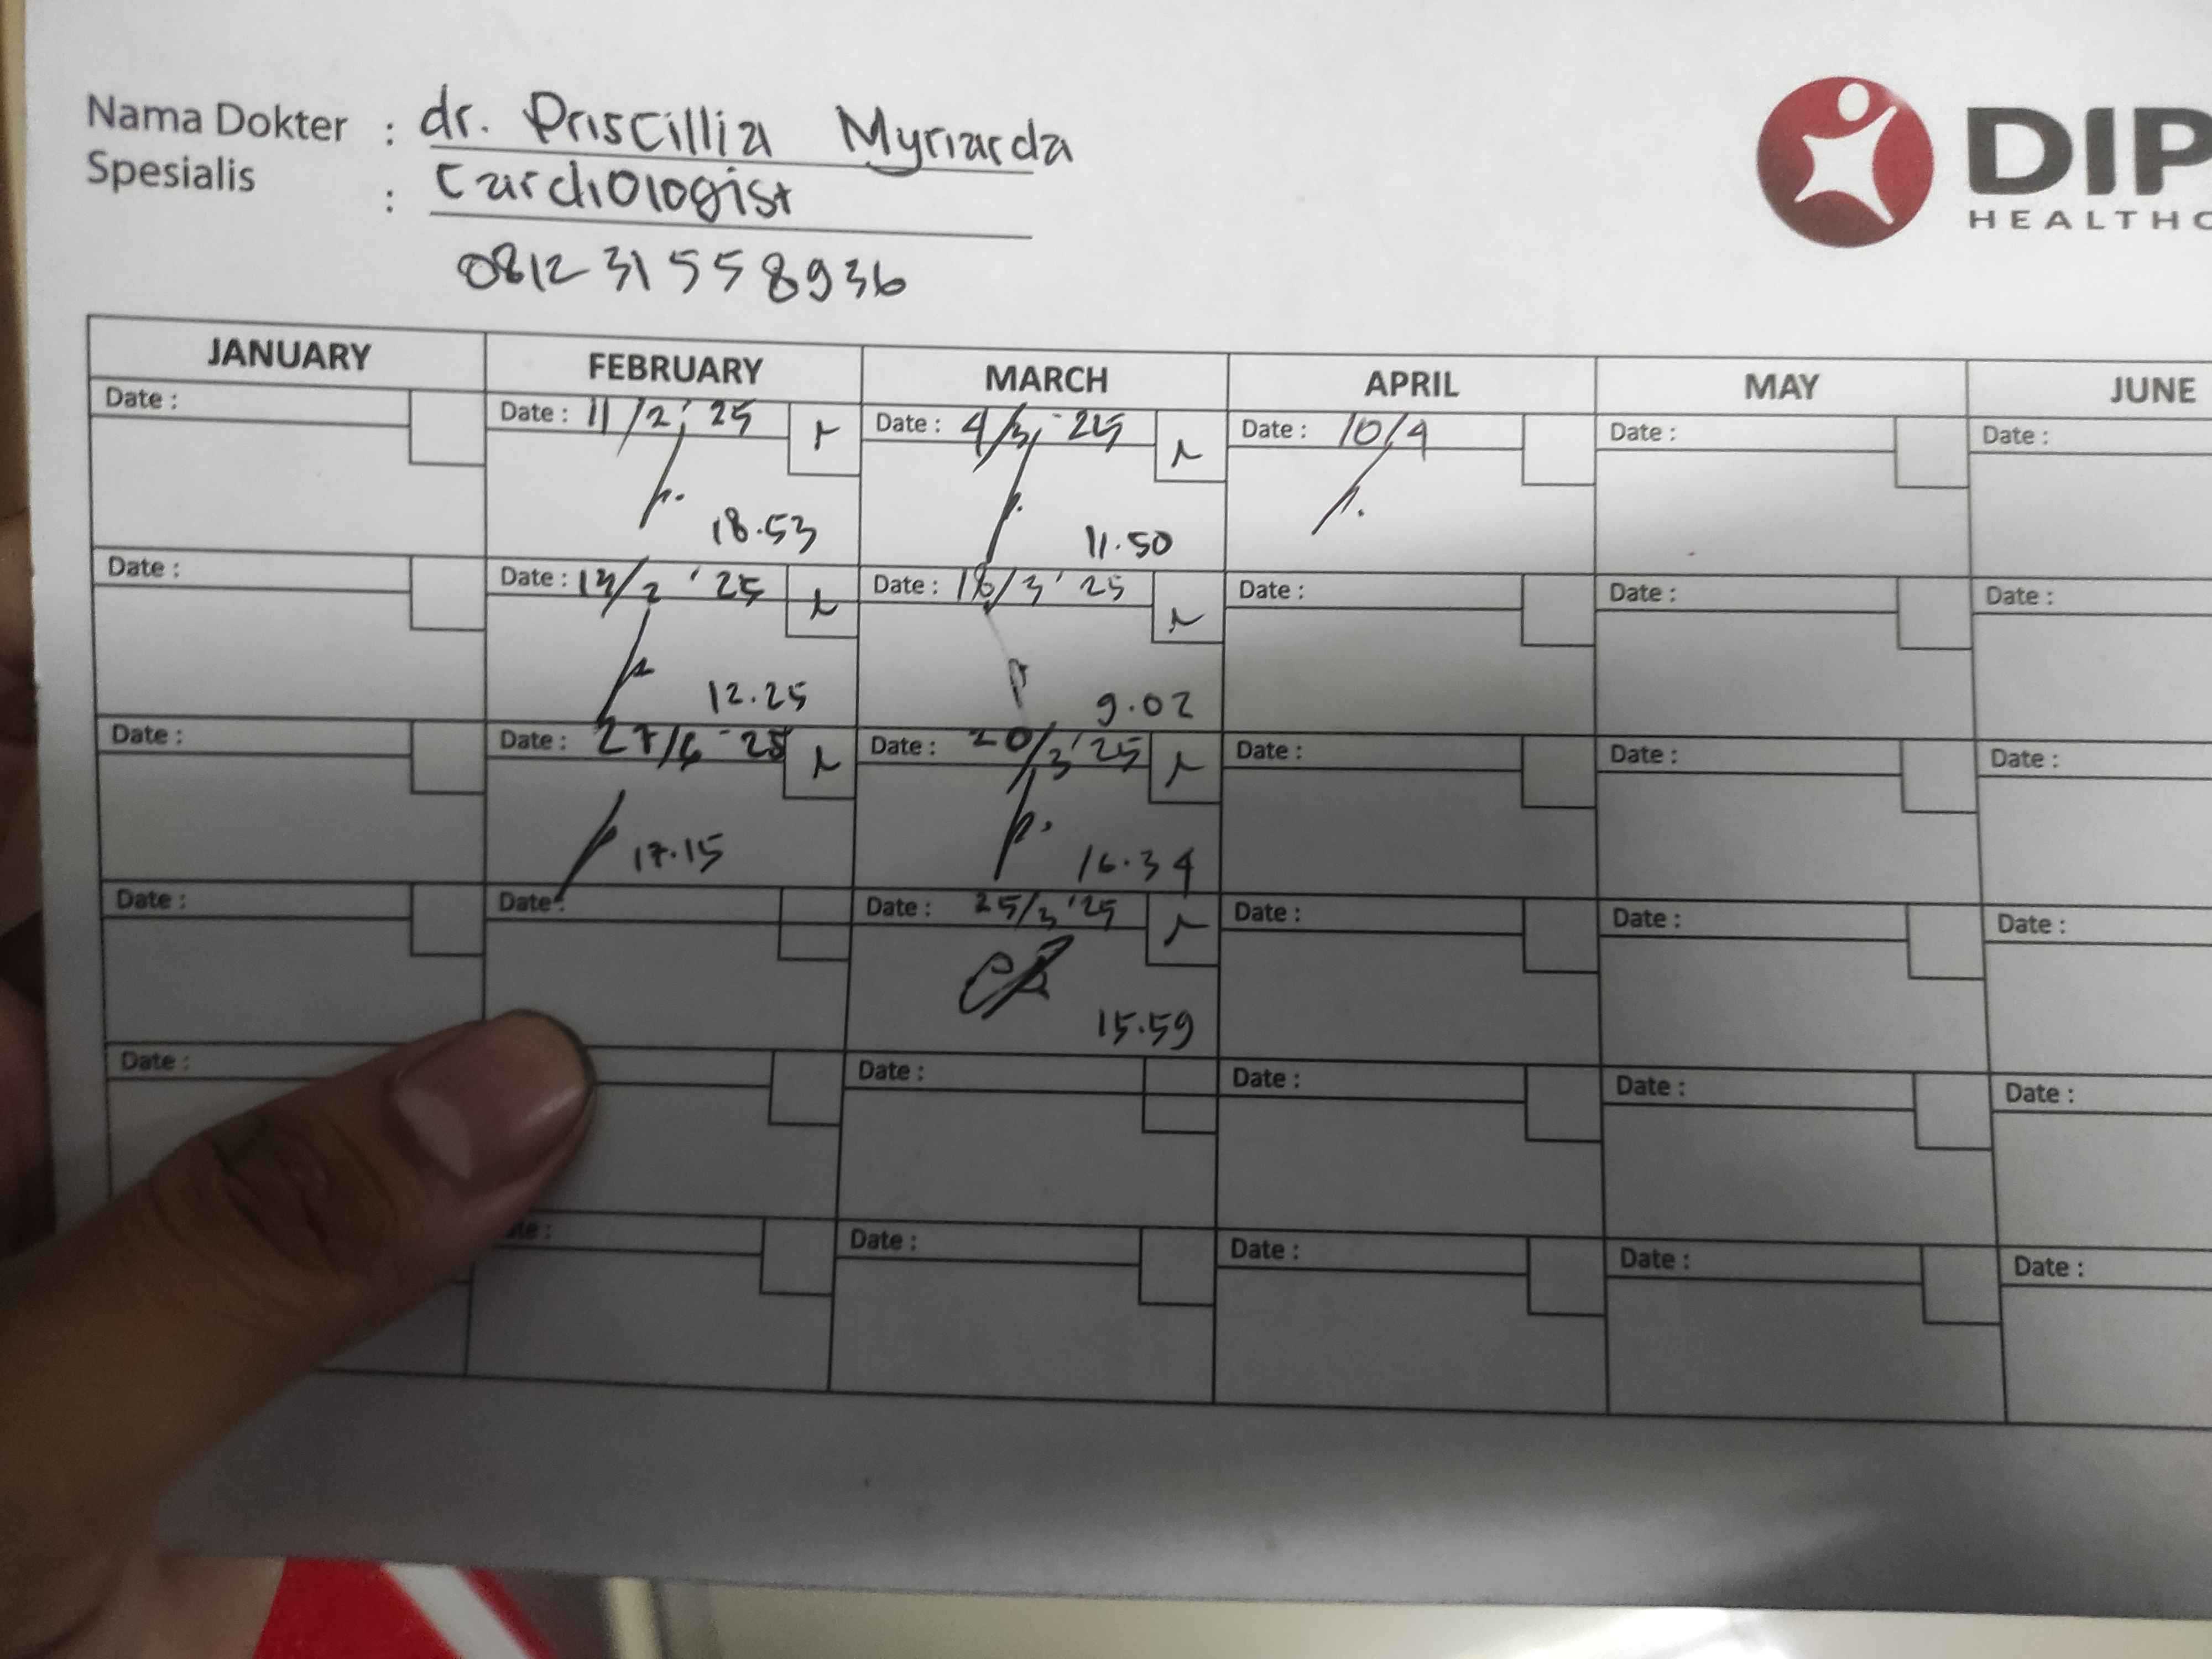 Nama Dokter : dr. Priscillia Myriarda
Spesialis : Cardiologist
081231558936
DIP
HEALTHC
JANUARY FEBRUARY MARCH APRIL MAY JUNE
Date : Date : 11/2 '25 Date : 4/3 '25 Date : 10/4 Date : Date :
18.53 11.50
Date : Date : /2 '25 Date : 18/3 '25 Date : Date : Date :
12.25 9.02
Date : Date : 27/ '25 Date : 20/3 '25 Date : Date : Date :
17.15 16.34
Date : Date : Date : 25/3 '25 Date : Date : Date :
15.59
Date : Date : Date : Date : Date :
Date : Date : Date : Date :